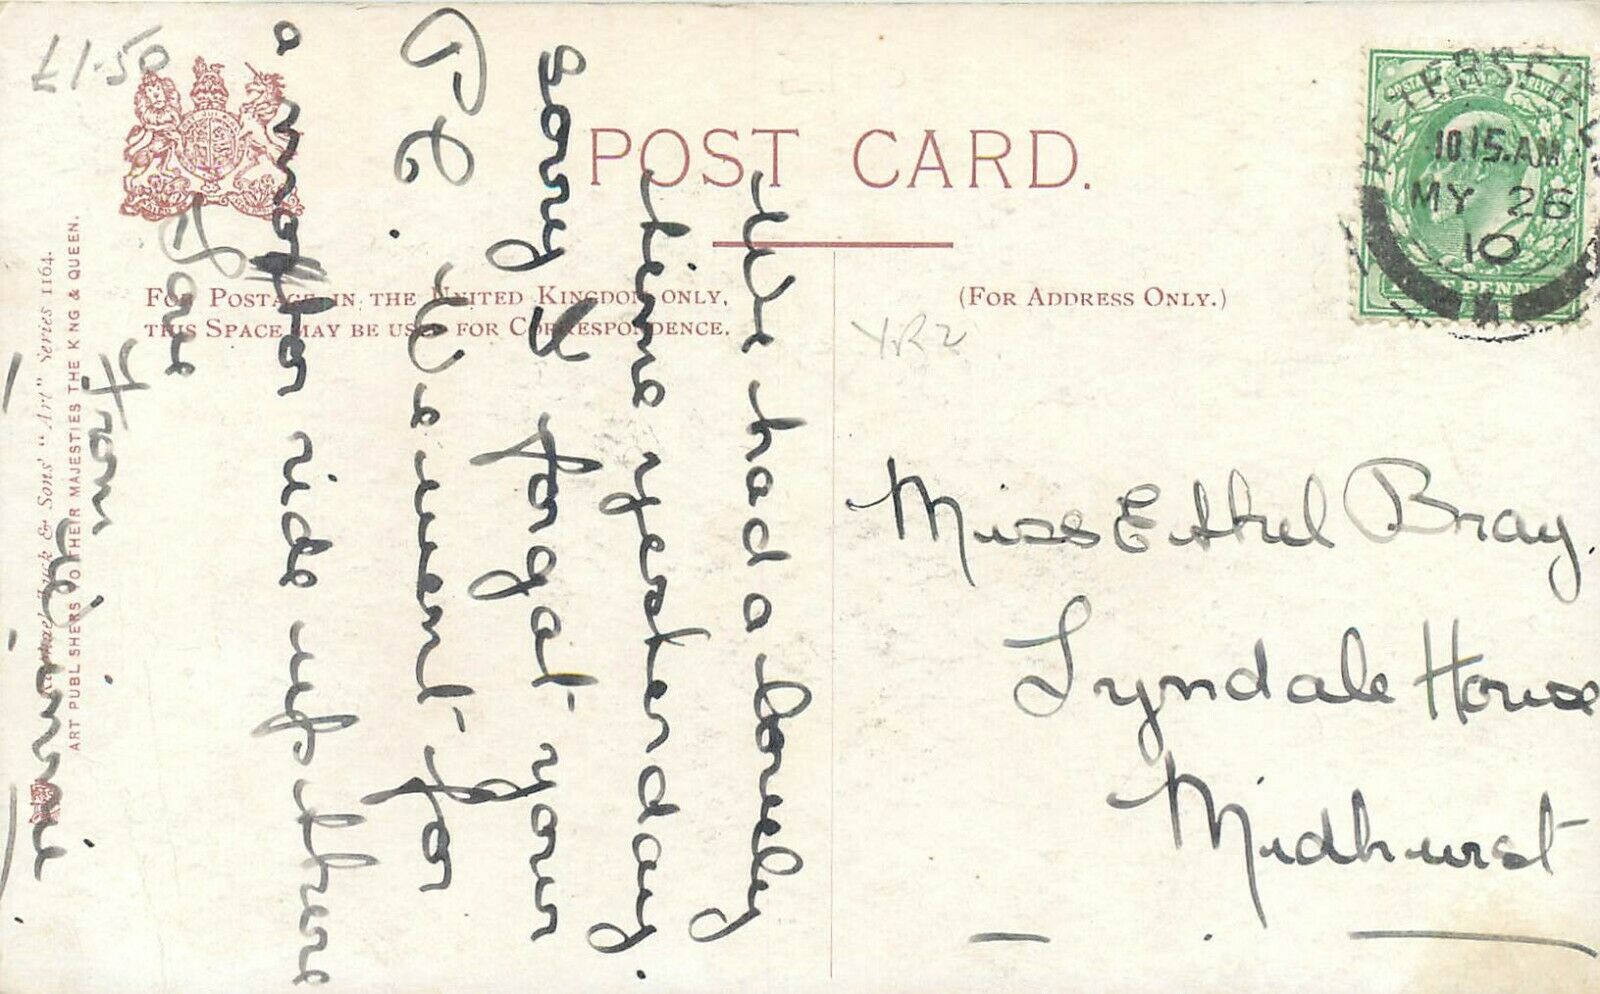 £1.50
POST CARD.
FOR POSTAGE IN THE UNITED KINGDOM ONLY,
THIS SPACE MAY BE USED FOR CORRESPONDENCE.
(FOR ADDRESS ONLY.)
PETERSFIELD
10.15.AM
MY 26
10
YR2
Miss Ethel Bray.
Lyndale House
Midhurst
We had a lovely
time yesterday.
Sorry I forgot your
P.C. We went for
a motor ride up there
Love
From Winnie
Raphael Tuck & Sons' "Art" Series 1164.
ART PUBLISHERS TO THEIR MAJESTIES THE KING & QUEEN.